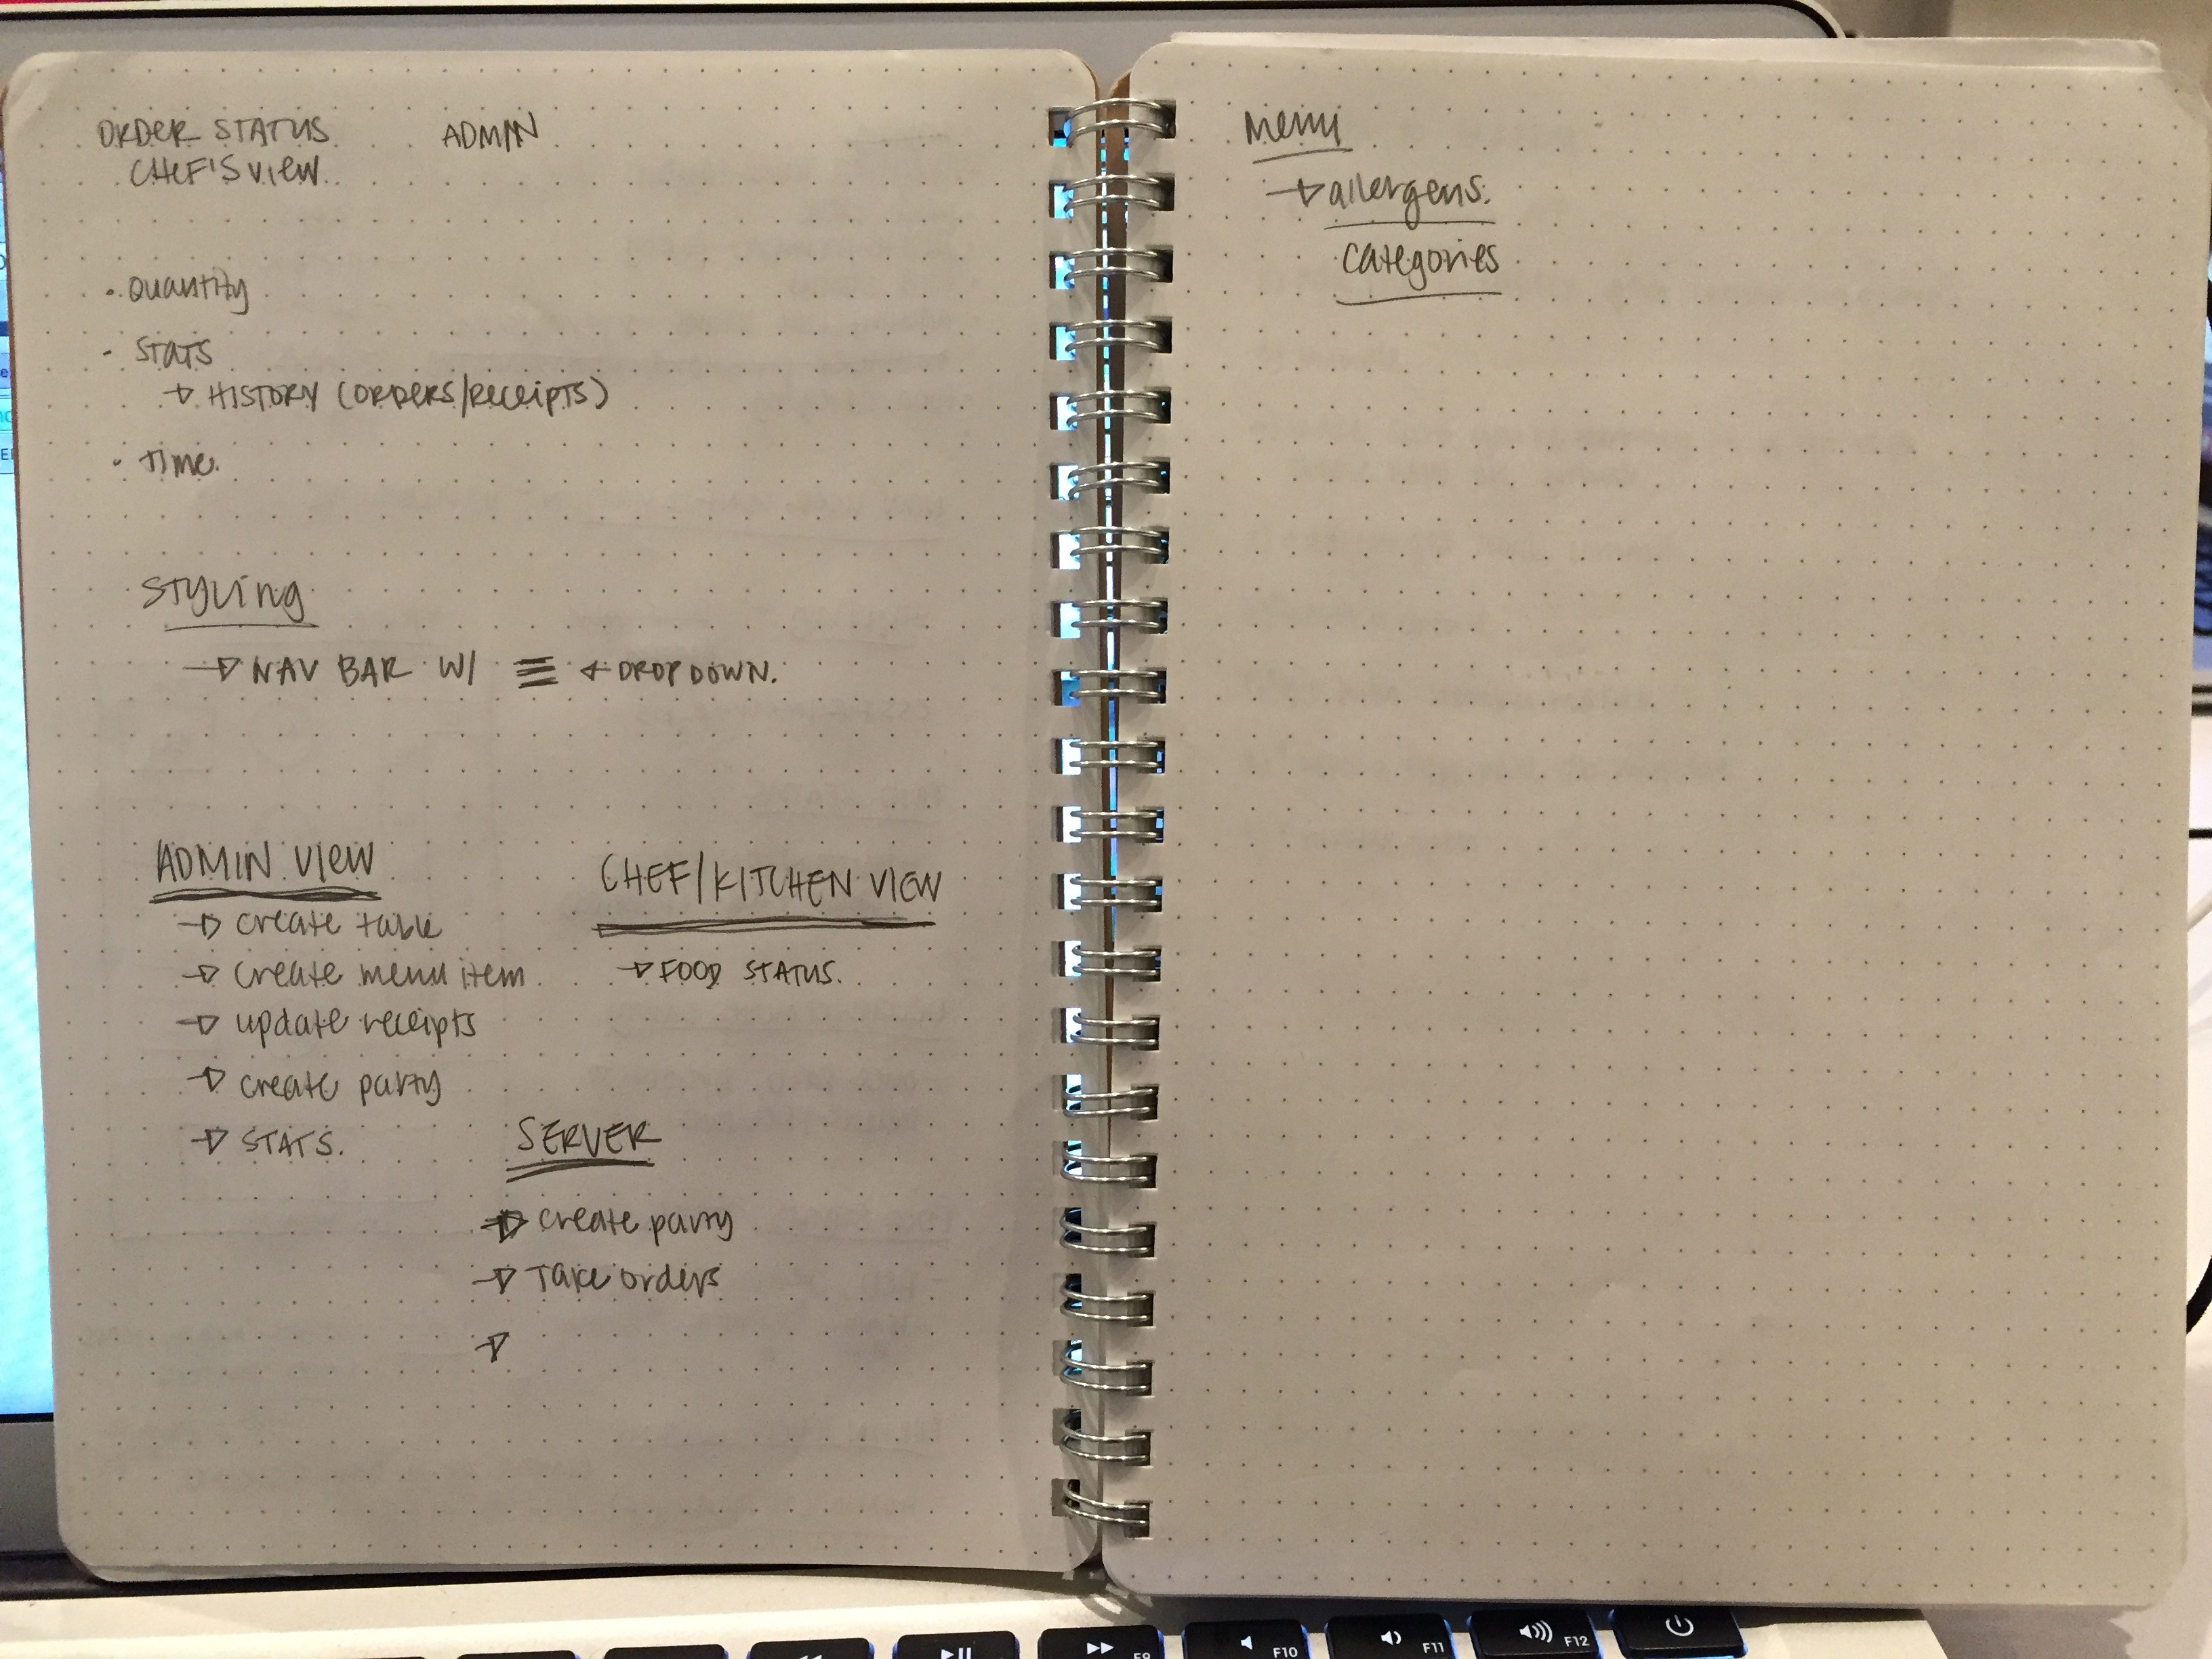 ORDER STATUS ADMIN
CHEF'S VIEW
· Quantity
· Stats
→ HISTORY (ORDERS/RECEIPTS)
· Time
Styling
→ NAV BAR W/ ≡ ← DROPDOWN.
ADMIN VIEW
→ create table
→ create menu item
→ update receipts
→ create party
→ STATS.
CHEF/KITCHEN VIEW
→ FOOD STATUS.
SERVER
→ create party
→ Take orders
→
Menu
→ allergens.
categories
F9
F10
F11
F12